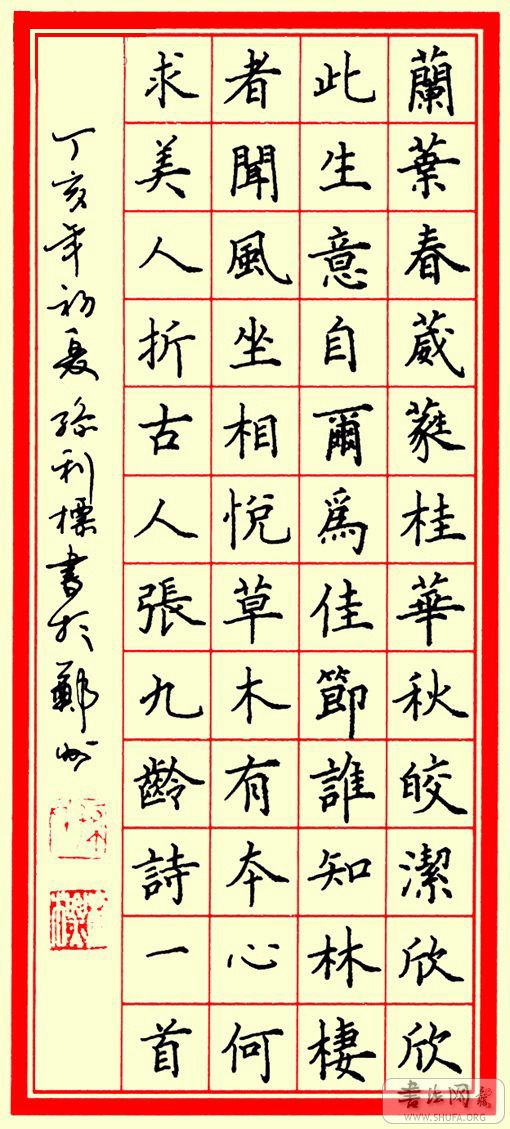 蘭葉春葳蕤桂華秋皎潔欣欣
此生意自爾爲佳節誰知林棲
者聞風坐相悅草木有本心何
求美人折古人張九齡詩一首
丁亥年初夏孫利標書於鄭州
書法网
WWW.SHUFA.ORG